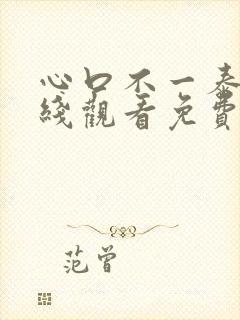 心口不一泰
綫觀看免費
范曾